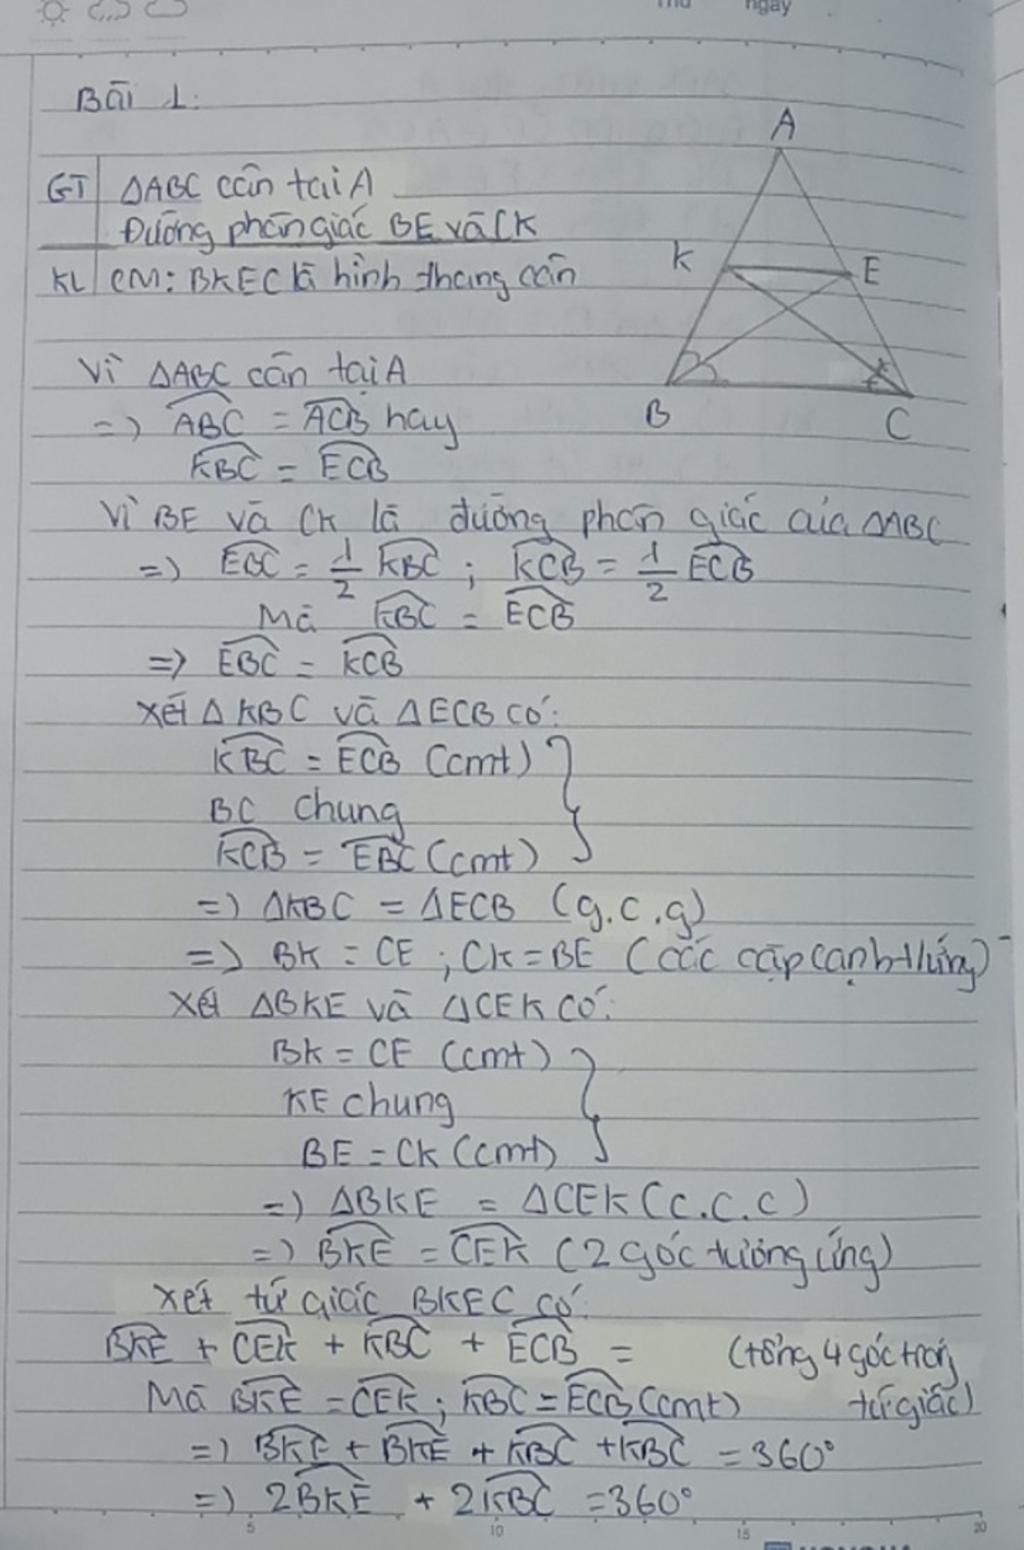 Thứ ngày
Bài 1:
A
GT ΔABC cân tại A
Đường phân giác BE và CK
K E
KL CM: BKEC là hình thang cân
Vì ΔABC cân tại A
B C
=> ABC = ACB hay
KBC = ECB
Vì BE và CK là đường phân giác của ΔABC
=> EBC = 1/2 KBC ; KCB = 1/2 ECB
Mà KBC = ECB
=> EBC = KCB
Xét Δ KBC và ΔECB có:
KBC = ECB (cmt)
BC chung
KCB = EBC (cmt)
=> ΔKBC = ΔECB (g.c.g)
=> BK = CE ; CK = BE (các cặp cạnh t/ứng)
Xét ΔBKE và ΔCEK có:
BK = CE (cmt)
KE chung
BE = CK (cmt)
=> ΔBKE = ΔCEK (c.c.c)
=> BKE = CEK (2 góc tương ứng)
Xét tứ giác BKEC có:
BKE + CEK + KBC + ECB = (tổng 4 góc trong
Mà BKE = CEK ; KBC = ECB (cmt) tứ giác)
=> BKE + BKE + KBC + KBC = 360°
=> 2BKE + 2KBC = 360°
5 10 15 20